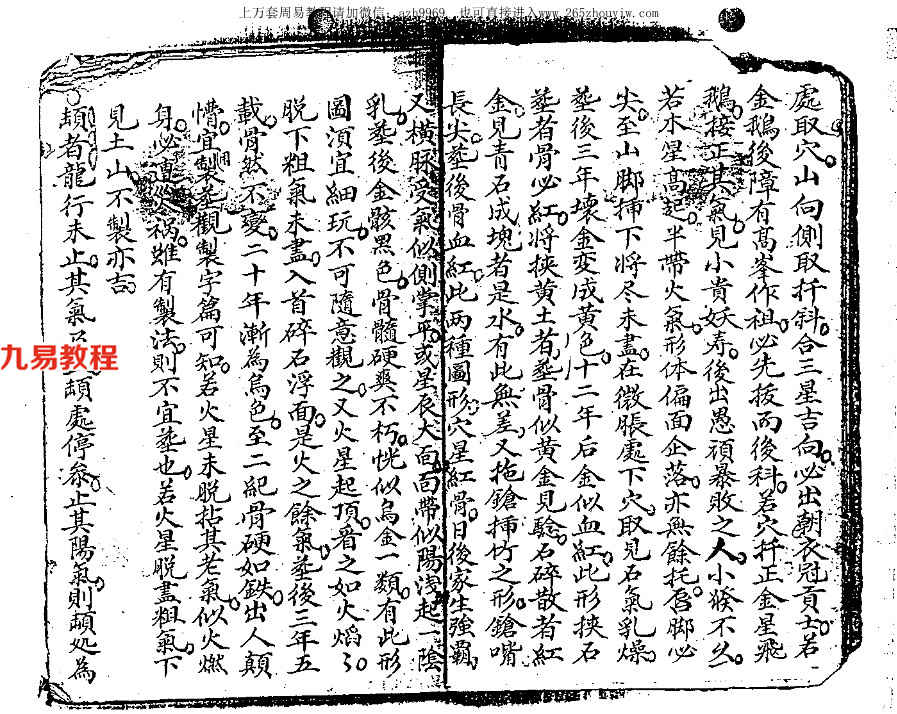 上万套周易教程请加微信:azh9969,也可直接进入www.265zhouyiw.com
處取穴山向側取扦斜合三星吉向必出朝衣冠貢士若
金鵝後障有高峯作祖必先拔而後科若穴扦正金星飛
鵝接正其氣見小貴妖寿後出愚頑暴敗之人小猴不久
若木星高起半帶火氣形体偏面企落亦無餘托唇脚必
尖至山脚揷下將尽未盡在微脹處下穴取見石氣乳燥
塟後三年壊金变成黄色十二年后金似血紅此形挾石
塟者骨必紅將挾黄土者塟骨似黄金見驗石碎散者紅
金見青石成塊者是水有此無差又拖鎗揷竹之形鎗嘴
長尖塟後骨血紅此两種圖形穴星紅骨日後家生強覇
又橫脉受氣似側掌平或星辰大面而帶似陽浅起一陰
乳塟後金骸黑色骨髓硬爽不朽恍似烏金一類有此形
圖湏宜細玩不可隨意觀之又火星起頂看之如火熖
脱下粗氣未盡入首碎石浮面是火之餘氣塟後三年五
載骨然不变二十年漸為烏色至二紀骨硬如鉄出人顛
懵宜製塟觀製字篇可知若火星未脱拈其老氣似火燃
身必遭火禍雖有製法則不宜塟也若火星脱盡粗氣下
見土山不製亦吉
頑者龍行未止其氣頑處停叅止其陽氣則頑処為
九易教程